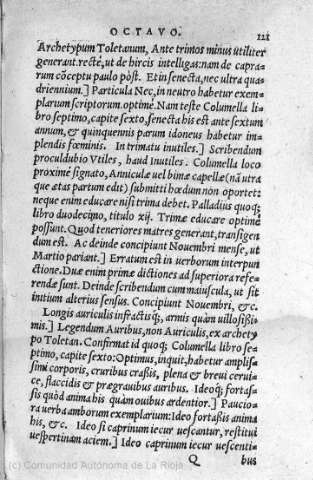 OCTAVO. 121
Archetypum Toletanum, Ante trimos minus utiliter
generant. recté, ut de hircis intelligas: nam de capra-
rum cōceptu paulo pòst. Et in senecta, nec ultra qua-
driennium.] Particula Nec, in neutro habetur exem-
plarum scriptorum. optimè. Nam teste Columella li-
bro septimo, capite sexto, senecta his est ante sextum
annum, & quinquennis parum idoneus habetur im-
plendis fœminis. In trimatu inutiles.] Scribendum
proculdubio Vtiles, haud Inutiles. Columella loco
proximè signato, Anniculæ uel bimæ capellæ (nā utra
que ætas partum edit) submitti hœdum non oportet:
neque enim educare nisi trima debet. Palladius quoq;
libro duodecimo, titulo xiij. Trimæ educare optimè
possunt. Quod teneriores matres generant, transigen
dum est. Ac deinde concipiunt Nouembri mense, ut
Martio pariant.] Erratum est in uerborum interpun
ctione. Duæ enim primæ dictiones ad superiora refe-
rendæ sunt. Deinde scribendum cum maiuscula, ut sit
initium alterius sensus. Concipiunt Nouembri, &c.
Longis auriculis infractisq;, armis quàm uillosissi-
mis.] Legendum Auribus, non Auriculis, ex archety
po Toletan. Confirmat id quoq; Columella libro se-
ptimo, capite sexto: Optimus, inquit, habetur amplis-
simi corporis, cruribus craßis, plena & breui cerui-
ce, flaccidis & prægrauibus auribus. Ideoq; fortas-
sis quòd anima his quàm ouibus ardentior.] Paucio-
ra uerba amborum exemplarium: Ideo fortaßis anima
his, &c. Si caprinum iecur uescantur, restitui
uespertinam aciem.] Ideo caprinum iecur uescenti-
Q bus
(c) Comunidad Autónoma de La Rioja